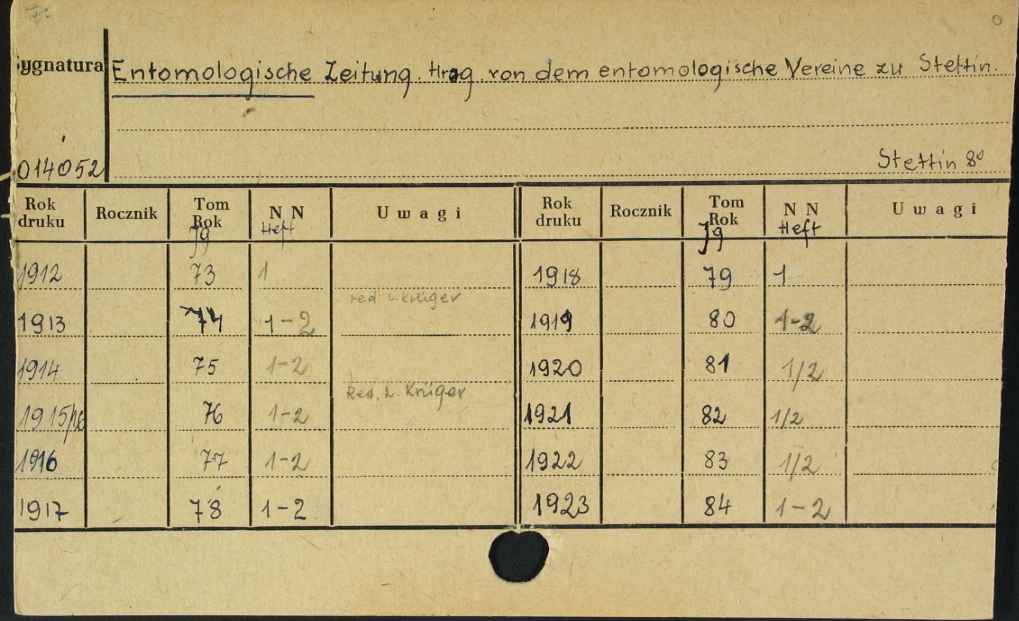 Sygnatura Entomologische Zeitung. Hrsg. von dem entomologische Vereine zu Stettin.
014052 Stettin 8°
Rok druku Rocznik Tom Rok N N Uwagi Rok druku Rocznik Tom Rok N N Uwagi
Jg Heft Jg Heft
1912 73 1 1918 79 1
red L. Krüger
1913 74 1-2 1919 80 1-2
1914 75 1-2 1920 81 1/2
Red. L. Krüger
1915/16 76 1-2 1921 82 1/2
1916 77 1-2 1922 83 1/2
1917 78 1-2 1923 84 1-2